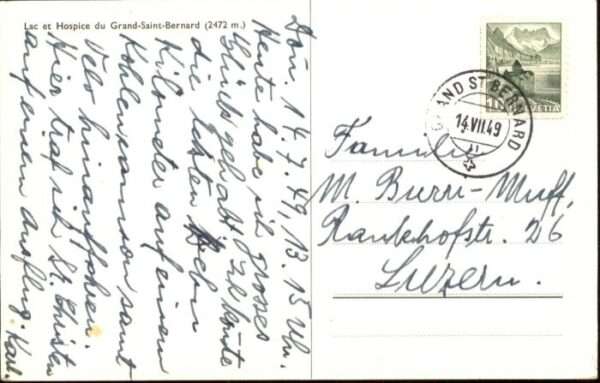 Lac et Hospice du Grand-Saint-Bernard (2472 m.)
Don. 14.7.49, 13.15 Uhr.
Heute habe ich grosses
Glück gehabt. Ich konnte
die letzten Zehn
Kilometer auf einem
Kohlencamion samt
Velo hinauffahren.
Hier traf ich St. Christen
auf einem Ausflug. Karl.
GRAND ST BERNARD
14.VII.49
10 HELVETIA
Familie
M. Burri-Muff,
Rankhofstr. 26
Luzern.